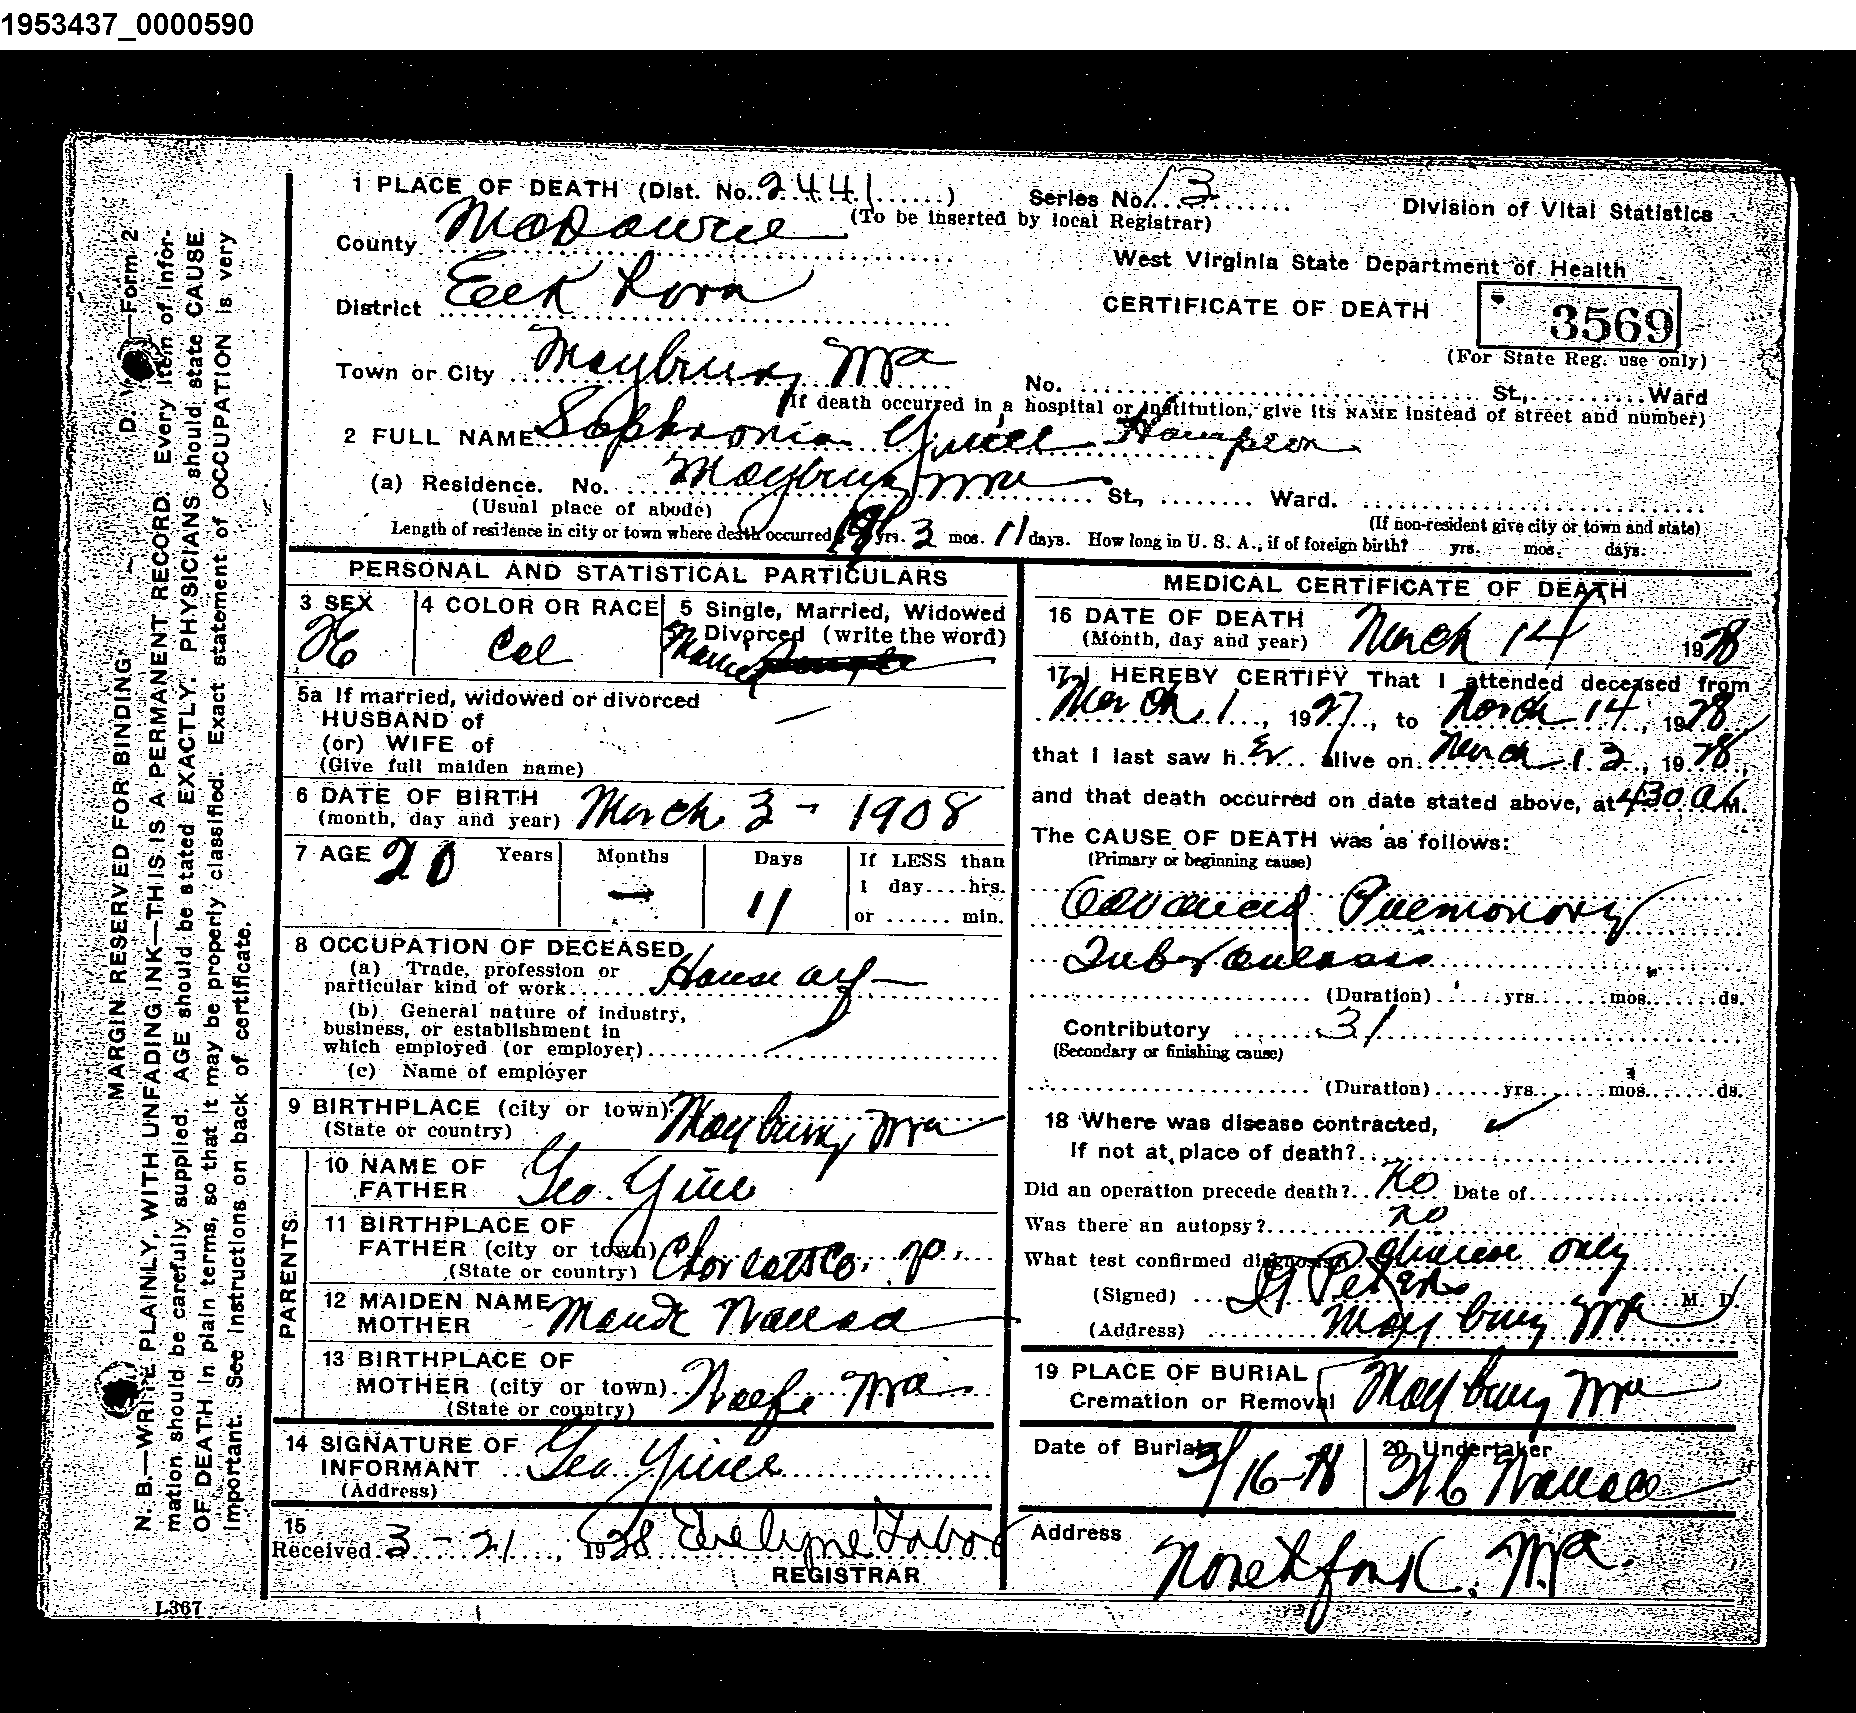 1953437_0000590
1 PLACE OF DEATH (Dist. No. 2441 ) Series No. 13 Division of Vital Statistics
(To be inserted by local Registrar)
County McDowell
West Virginia State Department of Health
District Elk Horn
CERTIFICATE OF DEATH 3569
(For State Reg. use only)
Town or City Maybury Wva No. St., Ward
If death occurred in a hospital or institution, give its NAME instead of street and number)
2 FULL NAME Sophronia Hampton
(a) Residence. No. Maybury Wva St., Ward.
(Usual place of abode) (If non-resident give city or town and state)
Length of residence in city or town where death occurred yrs. 3 mos. 11 days. How long in U. S. A., if of foreign birth? yrs. mos. days.
PERSONAL AND STATISTICAL PARTICULARS
3 SEX 4 COLOR OR RACE 5 Single, Married, Widowed
Divorced (write the word)
Fe Col Married
5a If married, widowed or divorced
HUSBAND of
(or) WIFE of
(Give full maiden name)
6 DATE OF BIRTH March 3 - 1908
(month, day and year)
7 AGE 20 Years Months Days If LESS than
— 11 1 day....hrs.
or ...... min.
8 OCCUPATION OF DECEASED
(a) Trade, profession or
particular kind of work House wf
(b) General nature of industry,
business, or establishment in
which employed (or employer)
(c) Name of employer
9 BIRTHPLACE (city or town) Maybury Wva
(State or country)
PARENTS
10 NAME OF
FATHER Geo.
11 BIRTHPLACE OF
FATHER (city or town)
(State or country)
12 MAIDEN NAME
MOTHER Maude Wallace
13 BIRTHPLACE OF
MOTHER (city or town) Wva
(State or country)
14 SIGNATURE OF
INFORMANT Geo.
(Address)
15
Received 3 - 21, 1928 Evelyne Tabor
REGISTRAR
L367
MEDICAL CERTIFICATE OF DEATH
16 DATE OF DEATH March 14 1928
(Month, day and year)
17 I HEREBY CERTIFY That I attended deceased from
March 1, 1927, to March 14, 1928
that I last saw h er alive on March 12, 1928,
and that death occurred on date stated above, at 430 a M.
The CAUSE OF DEATH was as follows:
(Primary or beginning cause)
Advanced Pulmonory
Tuberculosis
(Duration) yrs. mos. ds.
Contributory 31
(Secondary or finishing cause)
(Duration) yrs. mos. ds.
18 Where was disease contracted,
If not at place of death?
Did an operation precede death? No Date of
Was there an autopsy? no
What test confirmed diagnosis only
(Signed) M. D.
(Address) Maybury Wva
19 PLACE OF BURIAL
Cremation or Removal Maybury Wva
Date of Burial 3/16-28 20 Undertaker
Wallace
Address
Northfork, Wva.
D. V. —Form 2
MARGIN RESERVED FOR BINDING.
N. B.—WRITE PLAINLY, WITH UNFADING INK—THIS IS A PERMANENT RECORD. Every item of infor-
mation should be carefully supplied. AGE should be stated EXACTLY. PHYSICIANS should state CAUSE
OF DEATH in plain terms, so that it may be properly classified. Exact statement of OCCUPATION is very
important. See instructions on back of certificate.